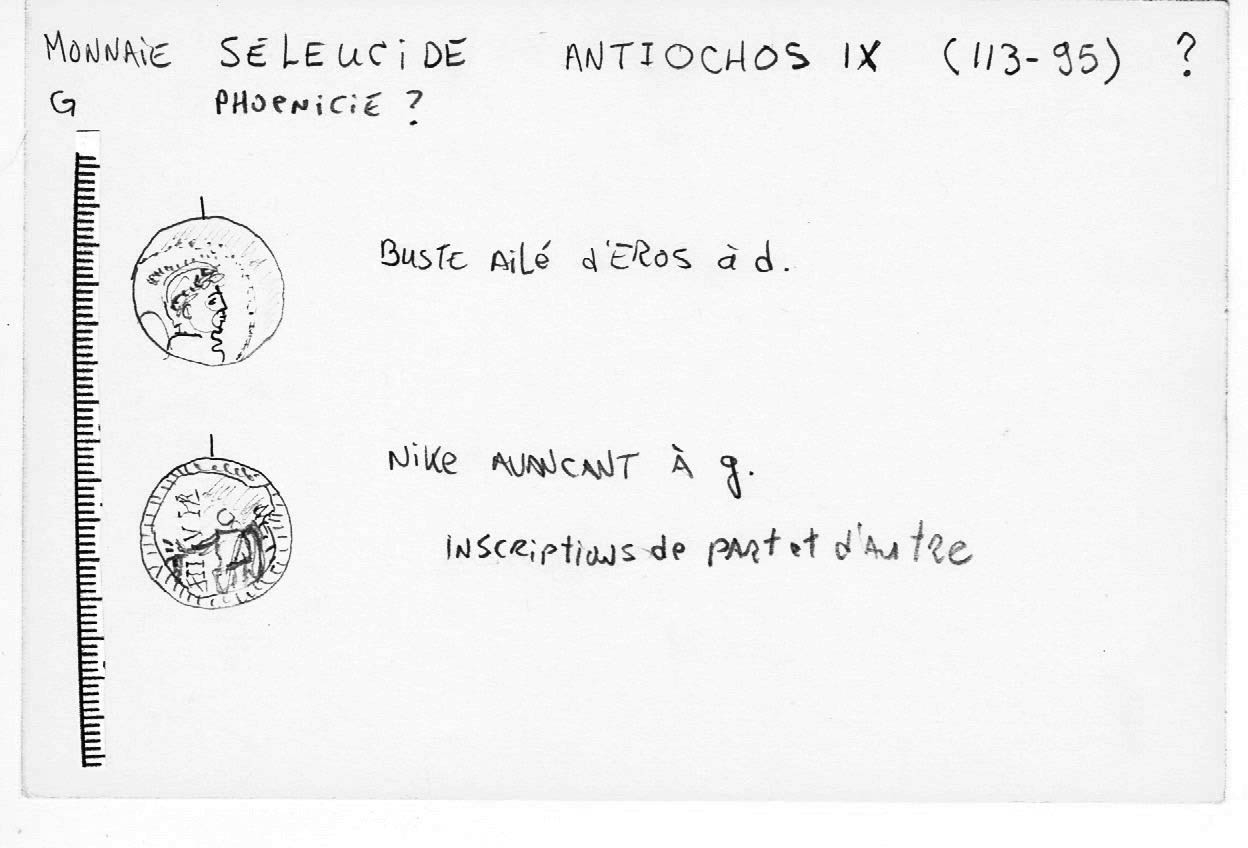 MONNAIE SÉLEUCIDE ANTIOCHOS IX (113-95) ?
G PHOENICIE ?
BUSTE AILÉ d'EROS à d.
NIKE AVANCANT À g.
INSCRIPTIONS de PART et d'AUTRE